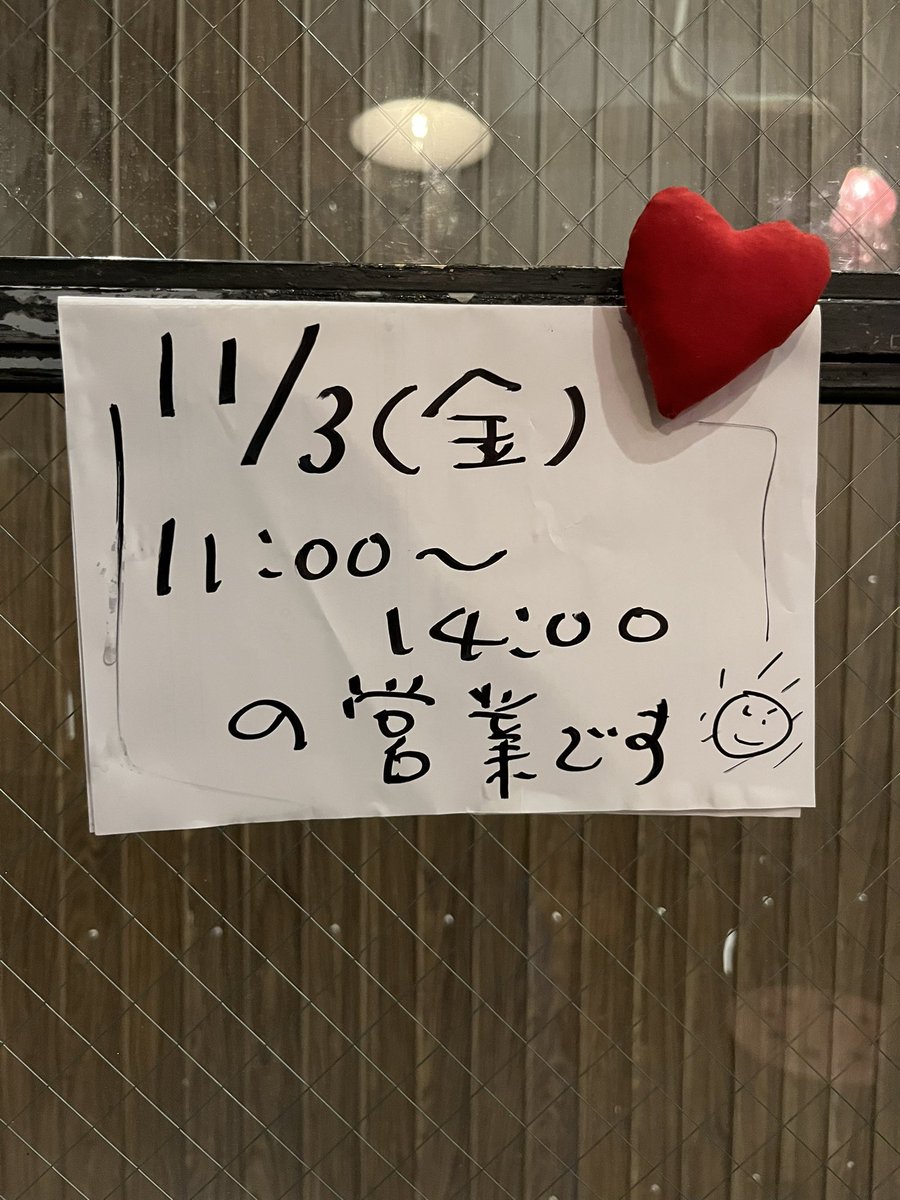 11/3(金)
11:00〜
14:00
の営業です